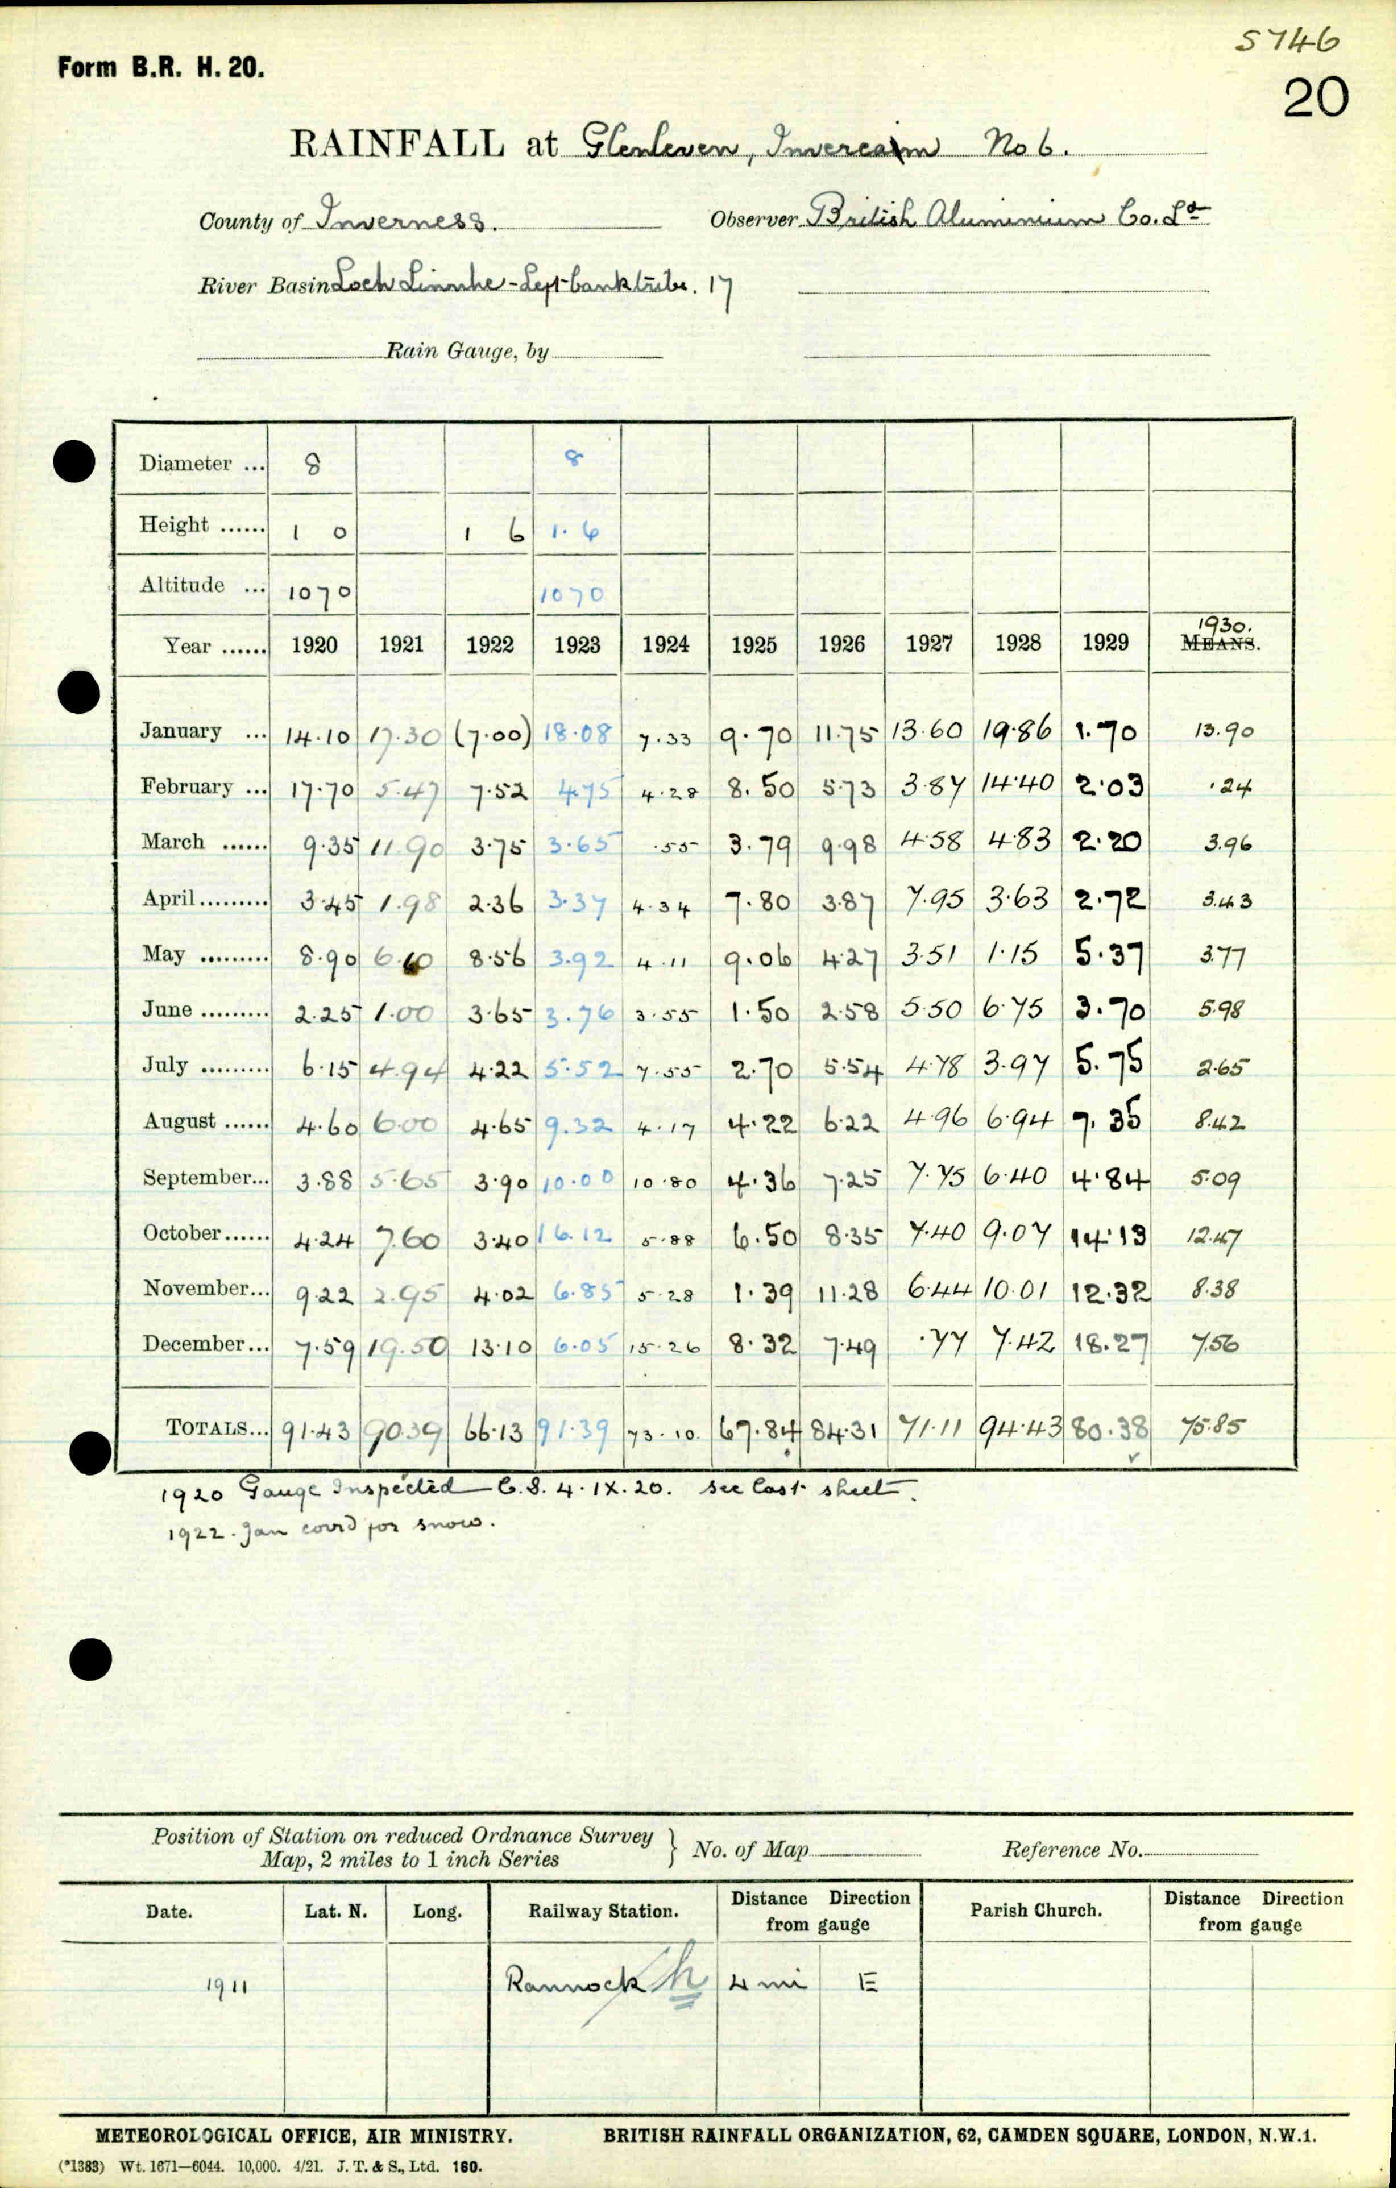 5746
Form B.R. H. 20.
20
RAINFALL at Glenleven, Invercairn No 6.
County of Inverness. Observer British Aluminium Co. Ld
River Basin Loch Linnhe - Left bank tribs. 17
Rain Gauge, by
Diameter ... 8 8
Height ...... 1 0 1 6 1.6
Altitude ... 1070 1070
Year ...... 1920 1921 1922 1923 1924 1925 1926 1927 1928 1929 1930. MEANS.
January ... 14.10 17.30 (7.00) 18.08 7.33 9.70 11.75 13.60 19.86 1.70 13.90
February ... 17.70 5.47 7.52 4.75 4.28 8.50 5.73 3.87 14.40 2.03 .24
March ...... 9.35 11.90 3.75 3.65 .55 3.79 9.98 4.58 4.83 2.20 3.96
April ......... 3.45 1.98 2.36 3.37 4.34 7.80 3.87 7.95 3.63 2.72 3.43
May ......... 8.90 6.10 8.56 3.92 4.11 9.06 4.27 3.51 1.15 5.37 3.77
June ......... 2.25 1.00 3.65 3.76 3.55 1.50 2.58 5.50 6.75 3.70 5.98
July ......... 6.15 4.94 4.22 5.52 7.55 2.70 5.54 4.78 3.97 5.75 2.65
August ...... 4.60 6.00 4.65 9.32 4.17 4.22 6.22 4.96 6.94 7.35 8.42
September... 3.88 5.65 3.90 10.00 10.80 4.36 7.25 7.75 6.40 4.84 5.09
October ...... 4.24 7.60 3.40 16.12 5.88 6.50 8.35 7.40 9.07 14.13 12.47
November... 9.22 2.95 4.02 6.85 5.28 1.39 11.28 6.44 10.01 12.32 8.38
December ... 7.59 19.50 13.10 6.05 15.26 8.32 7.49 .77 7.42 18.27 7.56
TOTALS... 91.43 90.39 66.13 91.39 73.10 67.84 84.31 71.11 94.43 80.38 75.85
1920 Gauge Inspected C.S. 4.IX.20. see last sheet.
1922. Jan corrd for snow.
Position of Station on reduced Ordnance Survey
Map, 2 miles to 1 inch Series } No. of Map Reference No.
Date. Lat. N. Long. Railway Station. Distance Direction from gauge Parish Church. Distance Direction from gauge
1911 Rannock h 4 mi E
METEOROLOGICAL OFFICE, AIR MINISTRY. BRITISH RAINFALL ORGANIZATION, 62, CAMDEN SQUARE, LONDON, N.W.1.
(*1383) Wt. 1671—6044. 10,000. 4/21. J. T. & S., Ltd. 160.